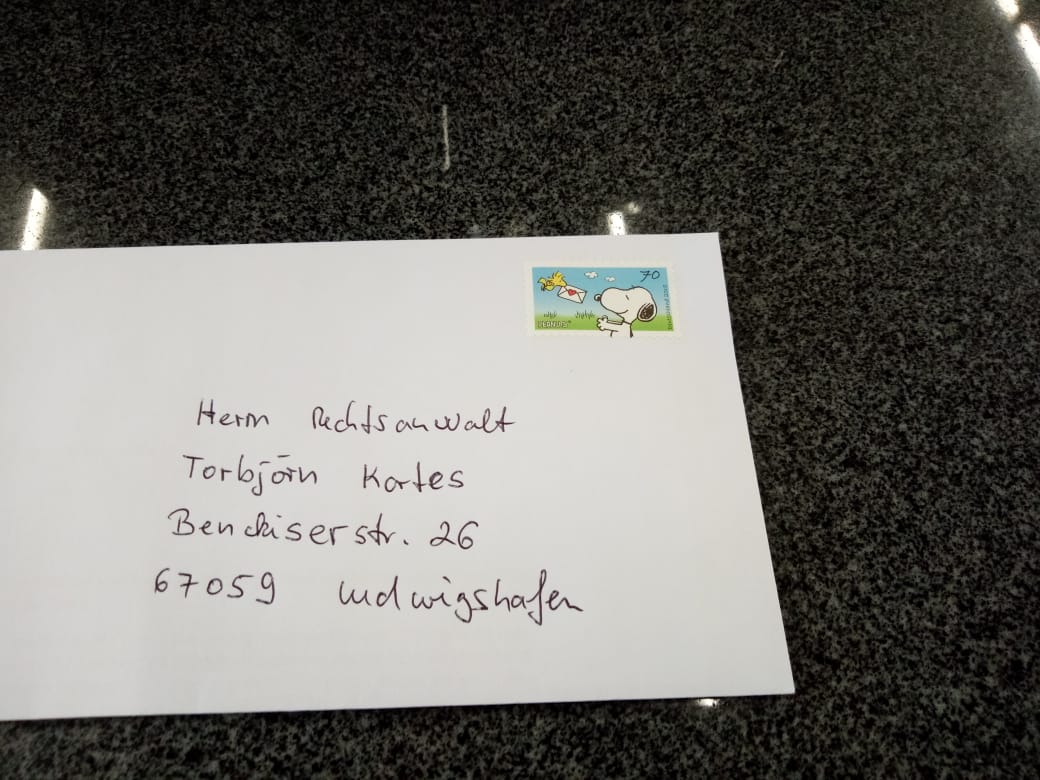 70
PEANUTS
Herrn Rechtsanwalt
Torbjörn Kartes
Benckiserstr. 26
67059 Ludwigshafen